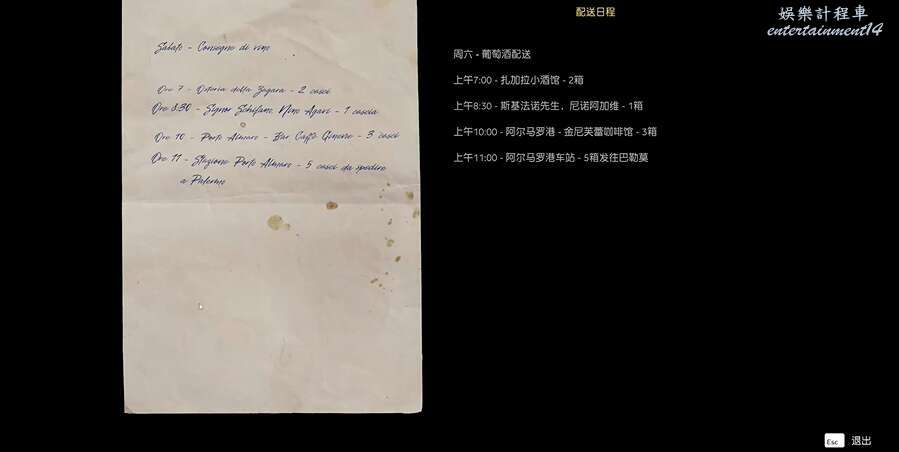 配送日程
娛樂計程車
entertainment14
Sabato - Consegne di vino
Ore 7 - Osteria della Zagara - 2 casci
Ore 8:30 - Signor Schifano, Nino Agavi - 1 cascia
Ore 10 - Porto Almaro - Bar Caffè Ginefre - 3 casci
Ore 11 - Stazione Porto Almaro - 5 casci da spedire
a Palermo
周六 - 葡萄酒配送
上午7:00 - 扎加拉小酒馆 - 2箱
上午8:30 - 斯基法诺先生，尼诺阿加维 - 1箱
上午10:00 - 阿尔马罗港 - 金尼芙蕾咖啡馆 - 3箱
上午11:00 - 阿尔马罗港车站 - 5箱发往巴勒莫
Esc 退出